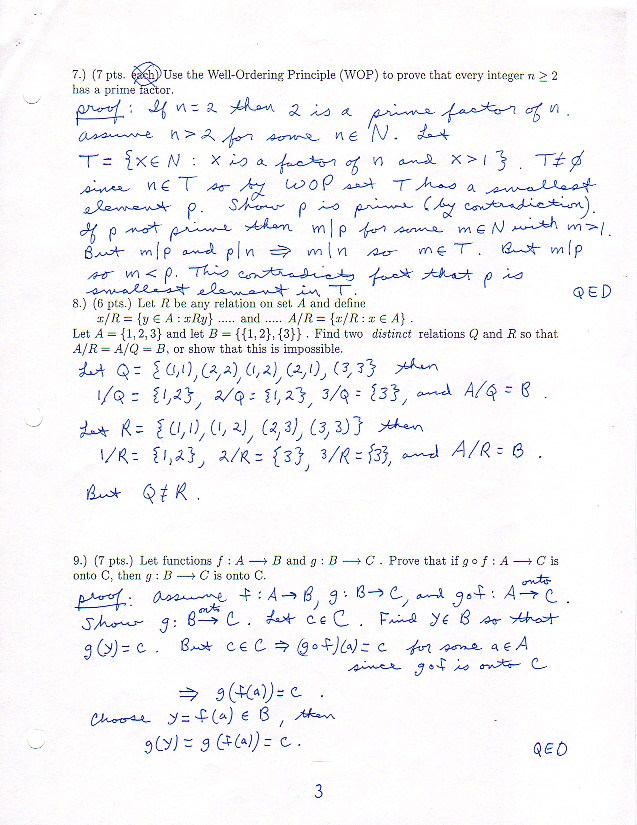 7.) (7 pts. each) Use the Well-Ordering Principle (WOP) to prove that every integer n ≥ 2
has a prime factor.
proof: If n=2 then 2 is a prime factor of n.
Assume n>2 for some n∈N. Let
T = {x∈N : x is a factor of n and x>1}. T≠∅
since n∈T so by WOP set T has a smallest
element p. Show p is prime (by contradiction).
If p not prime then m|p for some m∈N with m>1.
But m|p and p|n ⇒ m|n so m∈T. But m|p
so m<p. This contradicts fact that p is
smallest element in T. QED
8.) (6 pts.) Let R be any relation on set A and define
x/R = {y ∈ A : xRy} ..... and ..... A/R = {x/R : x ∈ A} .
Let A = {1, 2, 3} and let B = {{1, 2}, {3}} . Find two distinct relations Q and R so that
A/R = A/Q = B, or show that this is impossible.
Let Q = {(1,1), (2,2), (1,2), (2,1), (3,3} then
1/Q = {1,2}, 2/Q = {1,2}, 3/Q = {3}, and A/Q = B .
Let R = {(1,1), (1,2), (2,3), (3,3)} then
1/R = {1,2}, 2/R = {3}, 3/R = {3}, and A/R = B .
But Q ≠ R .
9.) (7 pts.) Let functions f : A ⟶ B and g : B ⟶ C . Prove that if g ∘ f : A ⟶ C is
onto C, then g : B ⟶ C is onto C.
proof: Assume f : A → B, g : B → C, and g∘f : A →onto C.
Show g : B →onto C . Let c∈C. Find y∈B so that
g(y) = c . But c∈C ⇒ (g∘f)(a) = c for some a∈A
since g∘f is onto C
⇒ g(f(a)) = c .
Choose y = f(a) ∈ B , then
g(y) = g(f(a)) = c .
QED
3